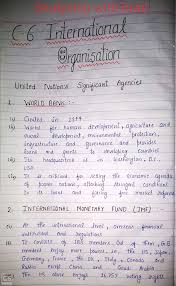 C-6 International
Organisation
United Nations Significant Agencies
1. WORLD BANK:-
(i) Created in 1944.
(ii) Works for human development, agriculture and
rural development, environmental protection,
infrastructure and governance and provides
loans and grants to developing countries
(iii) Its headquarter is in Washington, D.C.,
USA
(iv) It is criticised for setting the economic agenda
of poorer nations, attaching stringent conditions
to its loans and forcing free market
2. INTERNATIONAL MONETARY FUND (IMF)
(i) At the international level, oversees financial
institutions and regulations
(ii) It consists of 184 members. Out of them, G-8
members enjoy more power, i.e. the US, Japan
Germany, France, the UK, Italy, Canada and
Russia except China and Saudi Arabia
The US alone enjoys voting rights